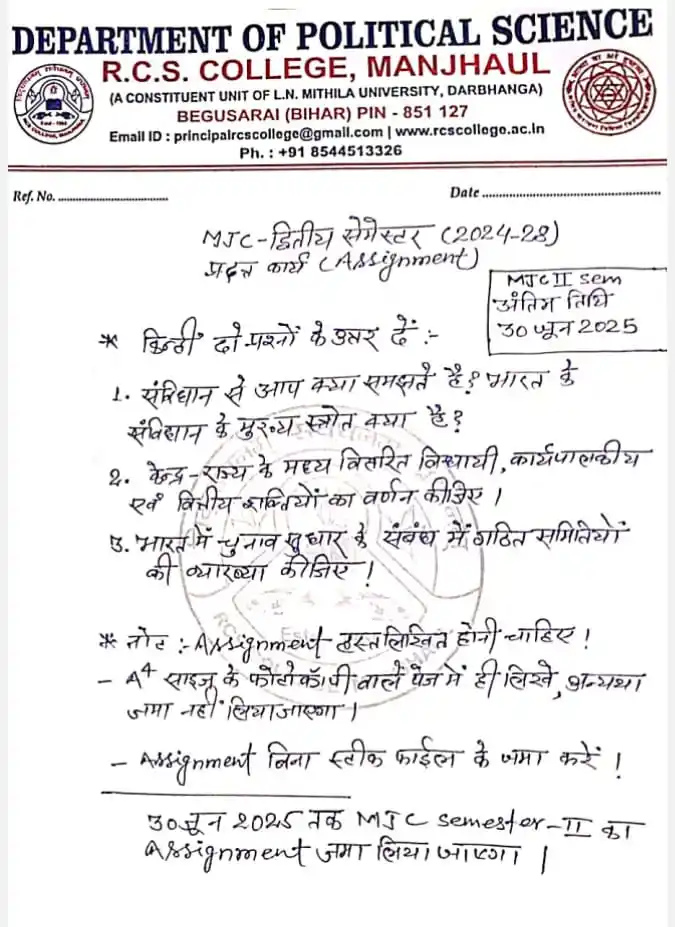 DEPARTMENT OF POLITICAL SCIENCE
R.C.S. COLLEGE, MANJHAUL
(A CONSTITUENT UNIT OF L.N. MITHILA UNIVERSITY, DARBHANGA)
BEGUSARAI (BIHAR) PIN - 851 127
Email ID : principalrcscollege@gmail.com | www.rcscollege.ac.in
Ph. : +91 8544513326
Ref. No.
Date
MJC-द्वितीय सेमेस्टर (2024-28)
प्रदत्त कार्य (Assignment)
MJC II Sem
अंतिम तिथि
30 जून 2025
* किन्हीं दो प्रश्नों के उत्तर दें :-
1. संविधान से आप क्या समझते हैं? भारत के
संविधान के मुख्य स्त्रोत क्या हैं?
2. केन्द्र-राज्य के मध्य वितरित विधायी, कार्यपालकीय
एवं वित्तीय शक्तियों का वर्णन कीजिए।
3. भारत में चुनाव सुधार के संबंध में गठित समितियों
की व्याख्या कीजिए!
* नोट :- Assignment हस्तलिखित होनी चाहिए!
- A4 साइज के फोटोकॉपी वाले पेज में ही लिखें, अन्यथा
जमा नहीं लिया जाएगा।
- Assignment बिना स्टीक फाईल के जमा करें!
30 जून 2025 तक MJC Semester-II का
Assignment जमा लिया जाएगा।